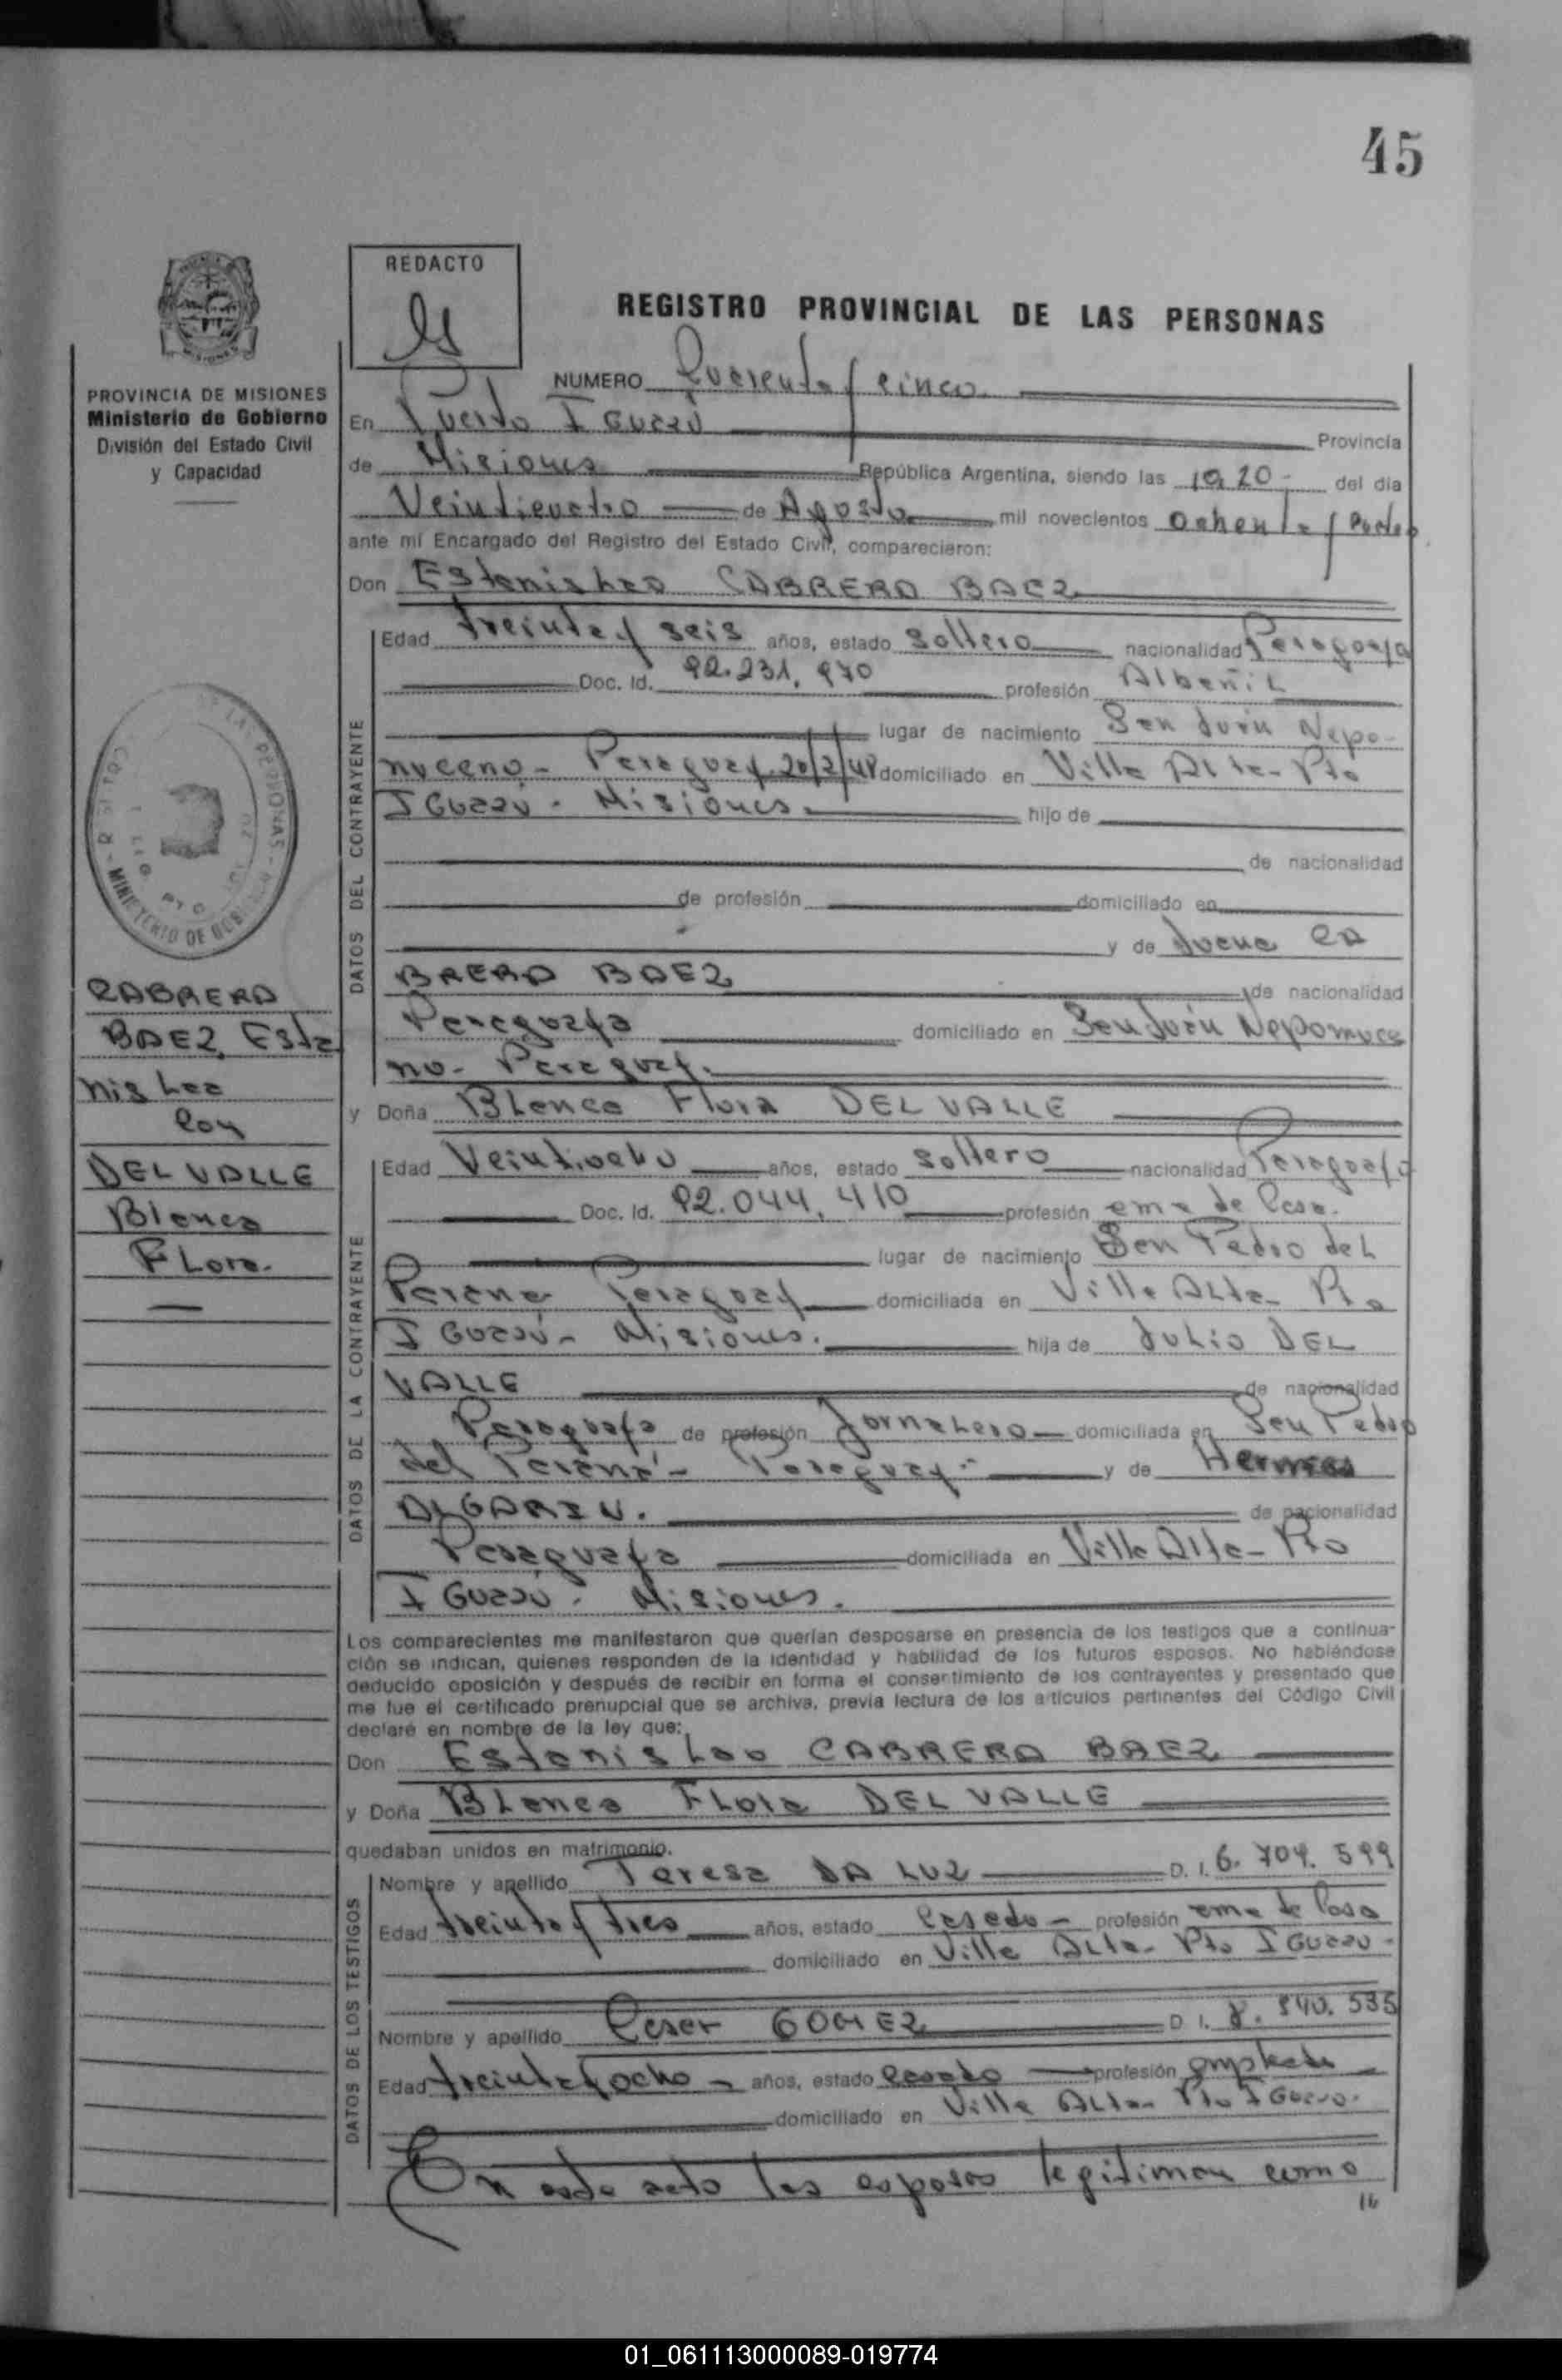 45
REDACTO
REGISTRO PROVINCIAL DE LAS PERSONAS
PROVINCIA DE MISIONES
Ministerio de Gobierno
División del Estado Civil
y Capacidad
NUMERO Cuarenta y cinco
En Puerto Iguazú Provincia
de Misiones República Argentina, siendo las 10,20 del día
Veinticuatro de Agosto mil novecientos ochenta y
ante mí Encargado del Registro del Estado Civil, comparecieron:
Don Estanislao CABRERA BAEZ
Edad treinta y seis años, estado soltero nacionalidad Paraguaya
Doc. Id. 92.231.970 profesión Albañil
lugar de nacimiento San Juan Nepo-
muceno - Paraguay 20/2/48 domiciliado en Villa Alta - Pto
Iguazú - Misiones. hijo de
de nacionalidad
de profesión domiciliado en
y de Juana CA
BRERA BAEZ de nacionalidad
Paraguaya domiciliado en San Juan Nepomuce
no - Paraguay.
y Doña Blanca Flora DEL VALLE
Edad Veintiocho años, estado soltero nacionalidad Paraguaya
Doc. Id. 92.044.410 profesión ama de Casa.
lugar de nacimiento San Pedro del
Paraná Paraguay domiciliada en Villa Alta - Pto
Iguazú - Misiones. hija de Julio DEL
VALLE de nacionalidad
Paraguaya de profesión Jornalero domiciliada en San Pedro
del Paraná - Paraguay - y de
ALGARIN. de nacionalidad
Paraguaya domiciliada en Villa Alta - Pto
Iguazú - Misiones.
Los comparecientes me manifestaron que querían desposarse en presencia de los testigos que a continua-
ción se indican, quienes responden de la identidad y habilidad de los futuros esposos. No habiéndose
deducido oposición y después de recibir en forma el consentimiento de los contrayentes y presentado que
me fue el certificado prenupcial que se archiva, previa lectura de los artículos pertinentes del Código Civil
declaré en nombre de la ley que:
Don Estanislao CABRERA BAEZ
y Doña Blanca Flora DEL VALLE
quedaban unidos en matrimonio.
Nombre y apellido Teresa DA LUZ D. I. 6.704.599
Edad treinta y tres años, estado Casado - profesión ama de Casa
domiciliado en Villa Alta - Pto Iguazú -
Nombre y apellido Cesar GOMEZ D. I. 8.540.535
Edad treinta y ocho - años, estado Casado profesión empleado
domiciliado en Villa Alta - Pto Iguazú.
En este acto los esposos legitiman como
16
DATOS DEL CONTRAYENTE
DATOS DE LA CONTRAYENTE
DATOS DE LOS TESTIGOS
CABRERA
BAEZ, Esta
nislao
con
DEL VALLE
Blanca
Flora.
01_061113000089-019774